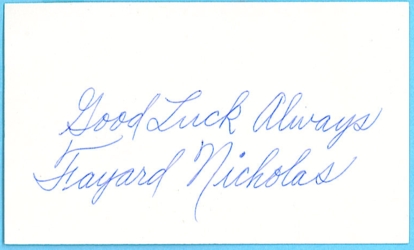 Good Luck Always
Fayard Nicholas